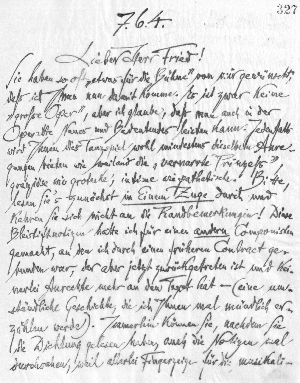 327
7.6.4.
Lieber Herr Fried!
Sie haben so oft „etwas für die Bühne" von mir gewünscht,
daß ich Ihnen nun damit komme. Es ist zwar keine
„große Oper", aber ich glaube, daß man auch in der
Operette Neues und Bedeutendes leisten kann. Jedenfalls
wird Ihnen das Tanzspiel wohl mindestens dieselben Anre-
gungen bieten wie weiland die „vernarrte Prinzeß"
grandiose wie groteske, intime wie pathetische. Bitte,
lesen Sie's zunächst in Einem Zuge durch und
kehren Sie sich nicht an die Randbemerkungen! Diese
Bleistiftnotizen hatte ich für einen andern Componisten
gemacht, an den ich durch einen früheren Contract ge-
bunden war, der aber jetzt zurückgetreten ist und kei-
nerlei Anrechte mehr an den Text hat — (eine um-
ständliche Geschichte, die ich Ihnen mal mündlich er-
zählen werde). Immerhin können Sie, nachdem Sie
die Dichtung gelesen haben, auch die Notizen mal
durchsehen, weil allerlei Fingerzeige für die musikali-